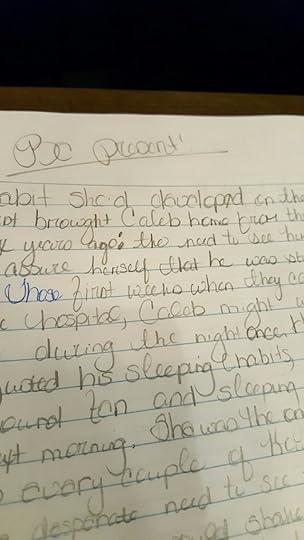 Be present"
abit she'd developed on the
ot brought Caleb home from th
years ago: the need to see
assure herself that he was
Those first weeks when they
hospital, Caleb might
during the night once
usted his sleeping habits,
ound ten and sleeping
morning. She was the on
every couple of
desperate need to see